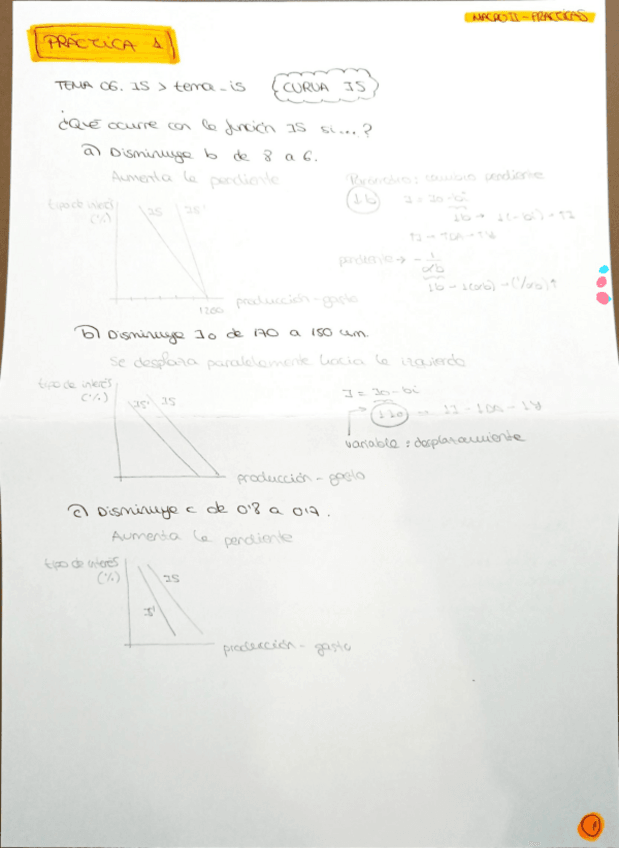 MACRO II - PRÁCTICAS
PRÁCTICA 1
TEMA 06. IS > tema-is CURVA IS
¿Qué ocurre con la función IS si...?
a) Disminuye b de 8 a 6.
Aumenta la pendiente
Parámetro: cambio pendiente
↓b I = Io - bi
tipo de interés
(%)
IS IS'
pendiente → - 1/αb
1200 producción - gasto
b) Disminuye Io de 170 a 150 um.
Se desplaza paralelamente hacia la izquierda
tipo de interés
(%)
IS' IS
I = Io - bi
↓Io = ↓I - ↓DA - ↓Y
variable: desplazamiento
producción - gasto
c) Disminuye c de 0'8 a 0'7.
Aumenta la pendiente
tipo de interés
(%)
IS
producción - gasto
1